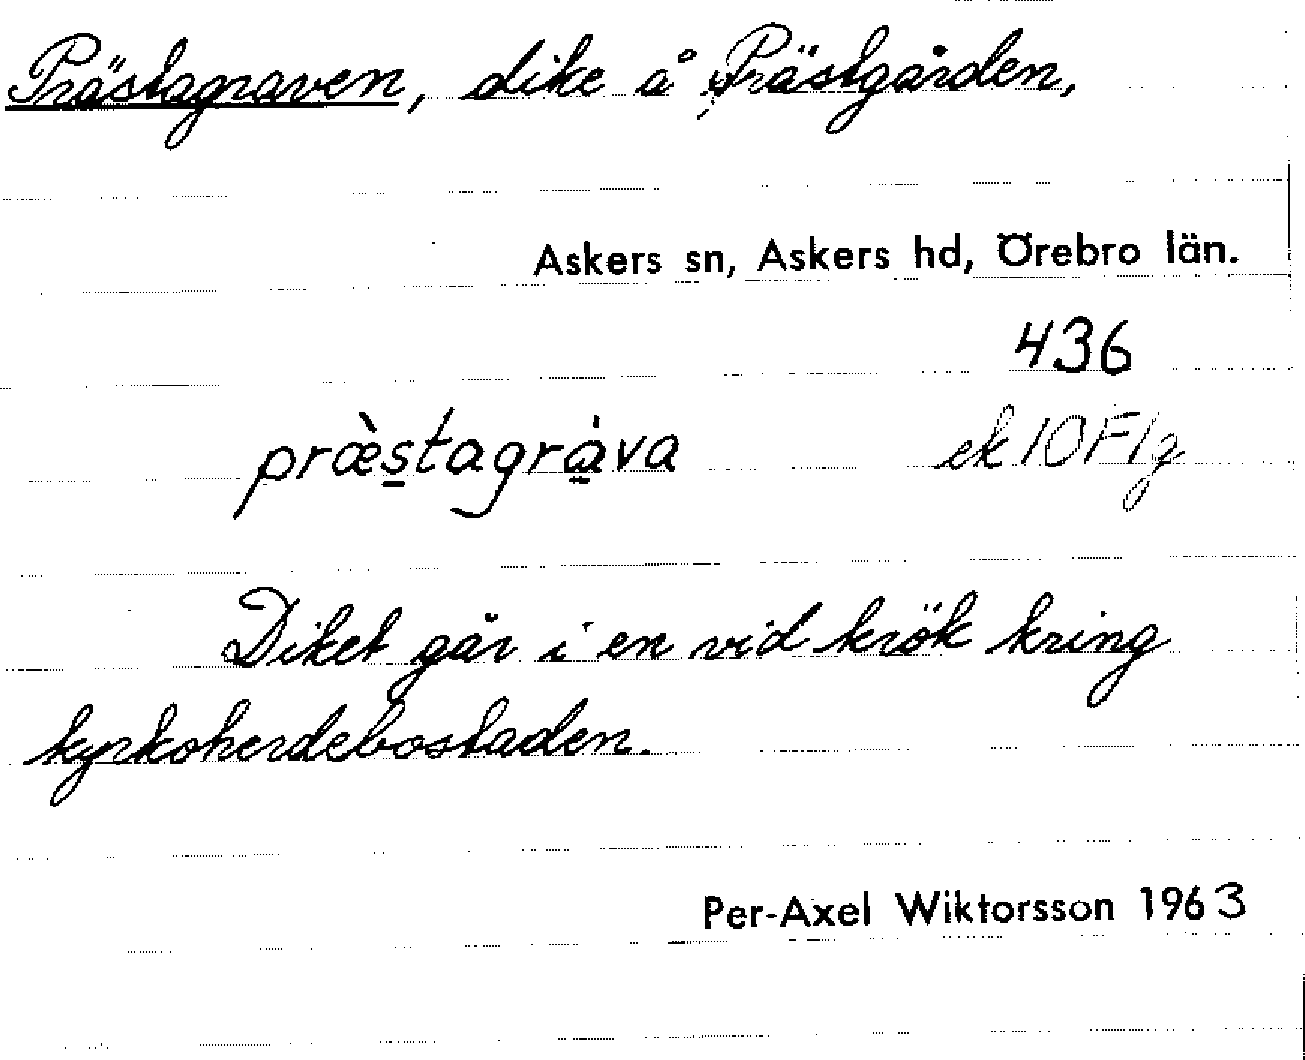 Prästagraven, dike å Prästgården,
Askers sn, Askers hd, Örebro län.
436
præ̀s̲tagrȧ̲va ek 10F1g
Diket går i en vid krök kring
kyrkoherdebostaden.
Per-Axel Wiktorsson 1963